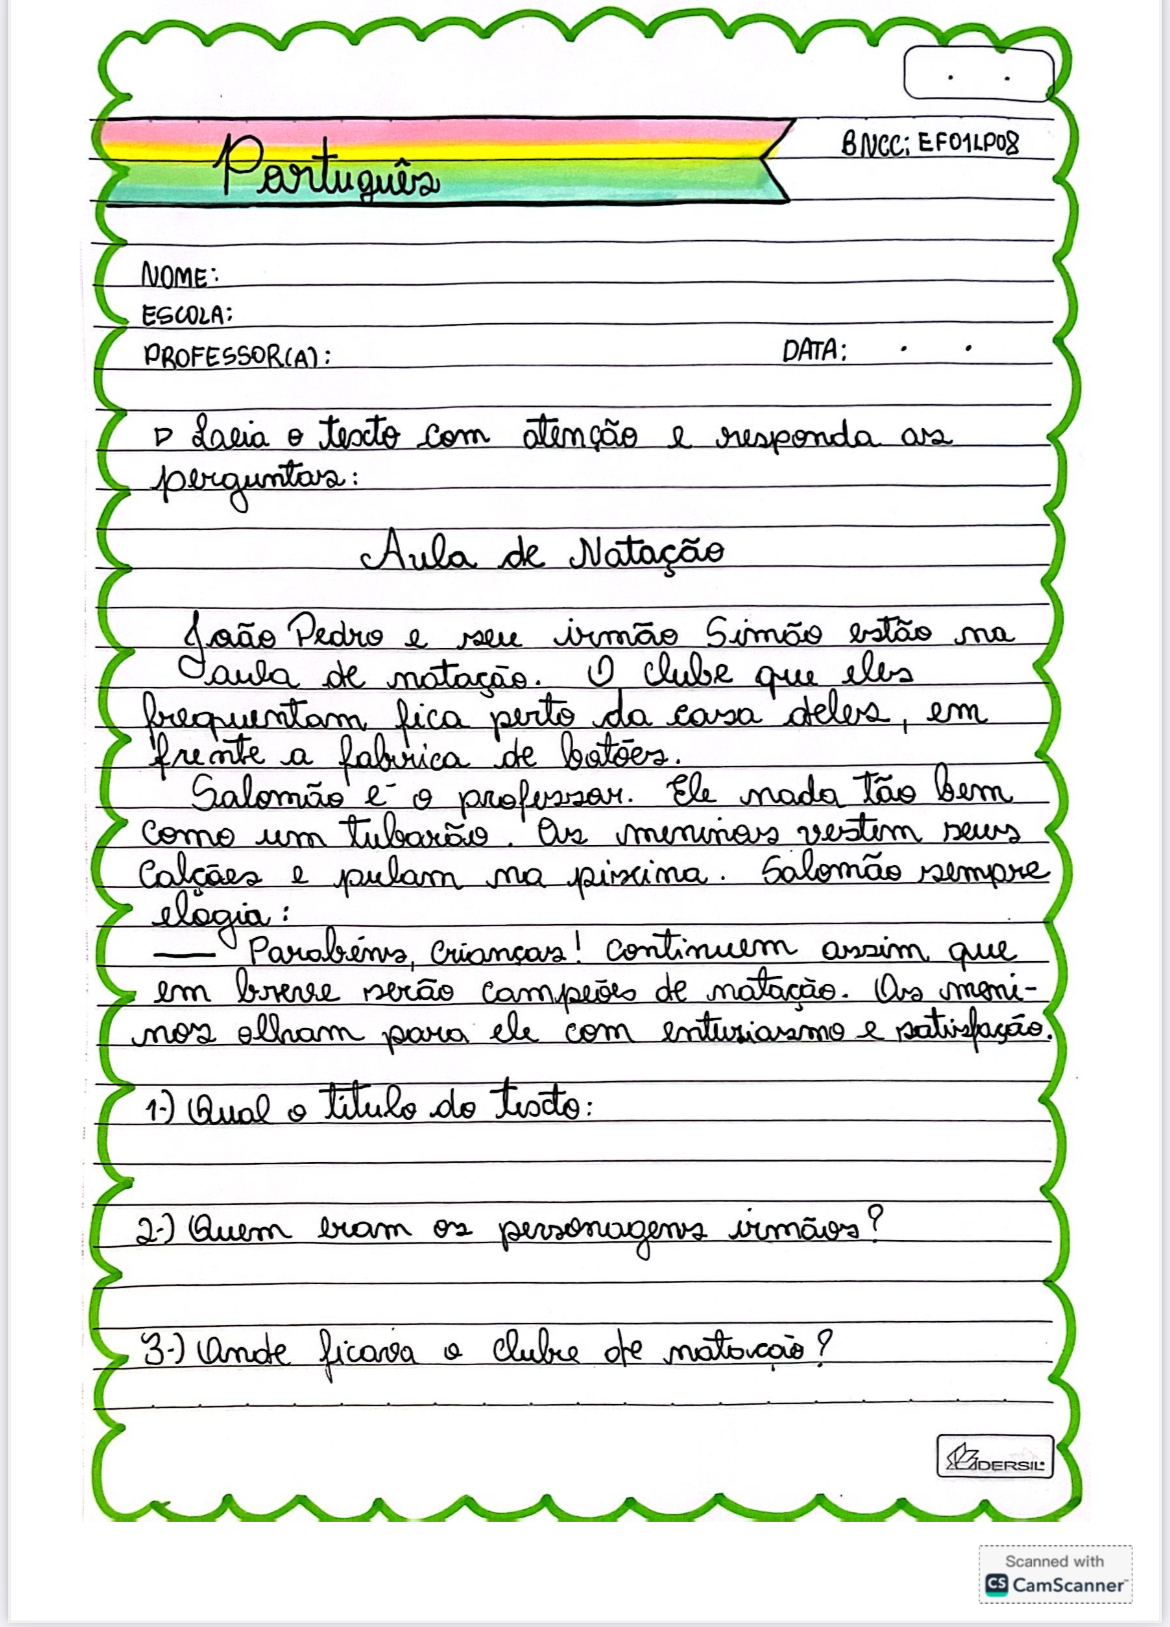 Português
BNCC: EF01LP08
NOME:
ESCOLA:
PROFESSOR(A):
DATA: . .
▷ Leia o texto com atenção e responda as
perguntas:
Aula de Natação
João Pedro e seu irmão Simão estão na
aula de natação. O clube que eles
frequentam, fica perto da casa deles, em
frente a fabrica de botões.
Salomão é o professor. Ele nada tão bem
como um tubarão. Os meninos vestem seus
calções e pulam na piscina. Salomão sempre
elogia:
— Parabéns, crianças! Continuem assim que
em breve serão campeões de natação. Os meni-
nos olham para ele com entusiasmo e satisfação.
1-) Qual o titulo do texto:
2-) Quem eram os personagens irmãos?
3-) Onde ficava o clube de natação?
IDERSIL
Scanned with
CS CamScanner